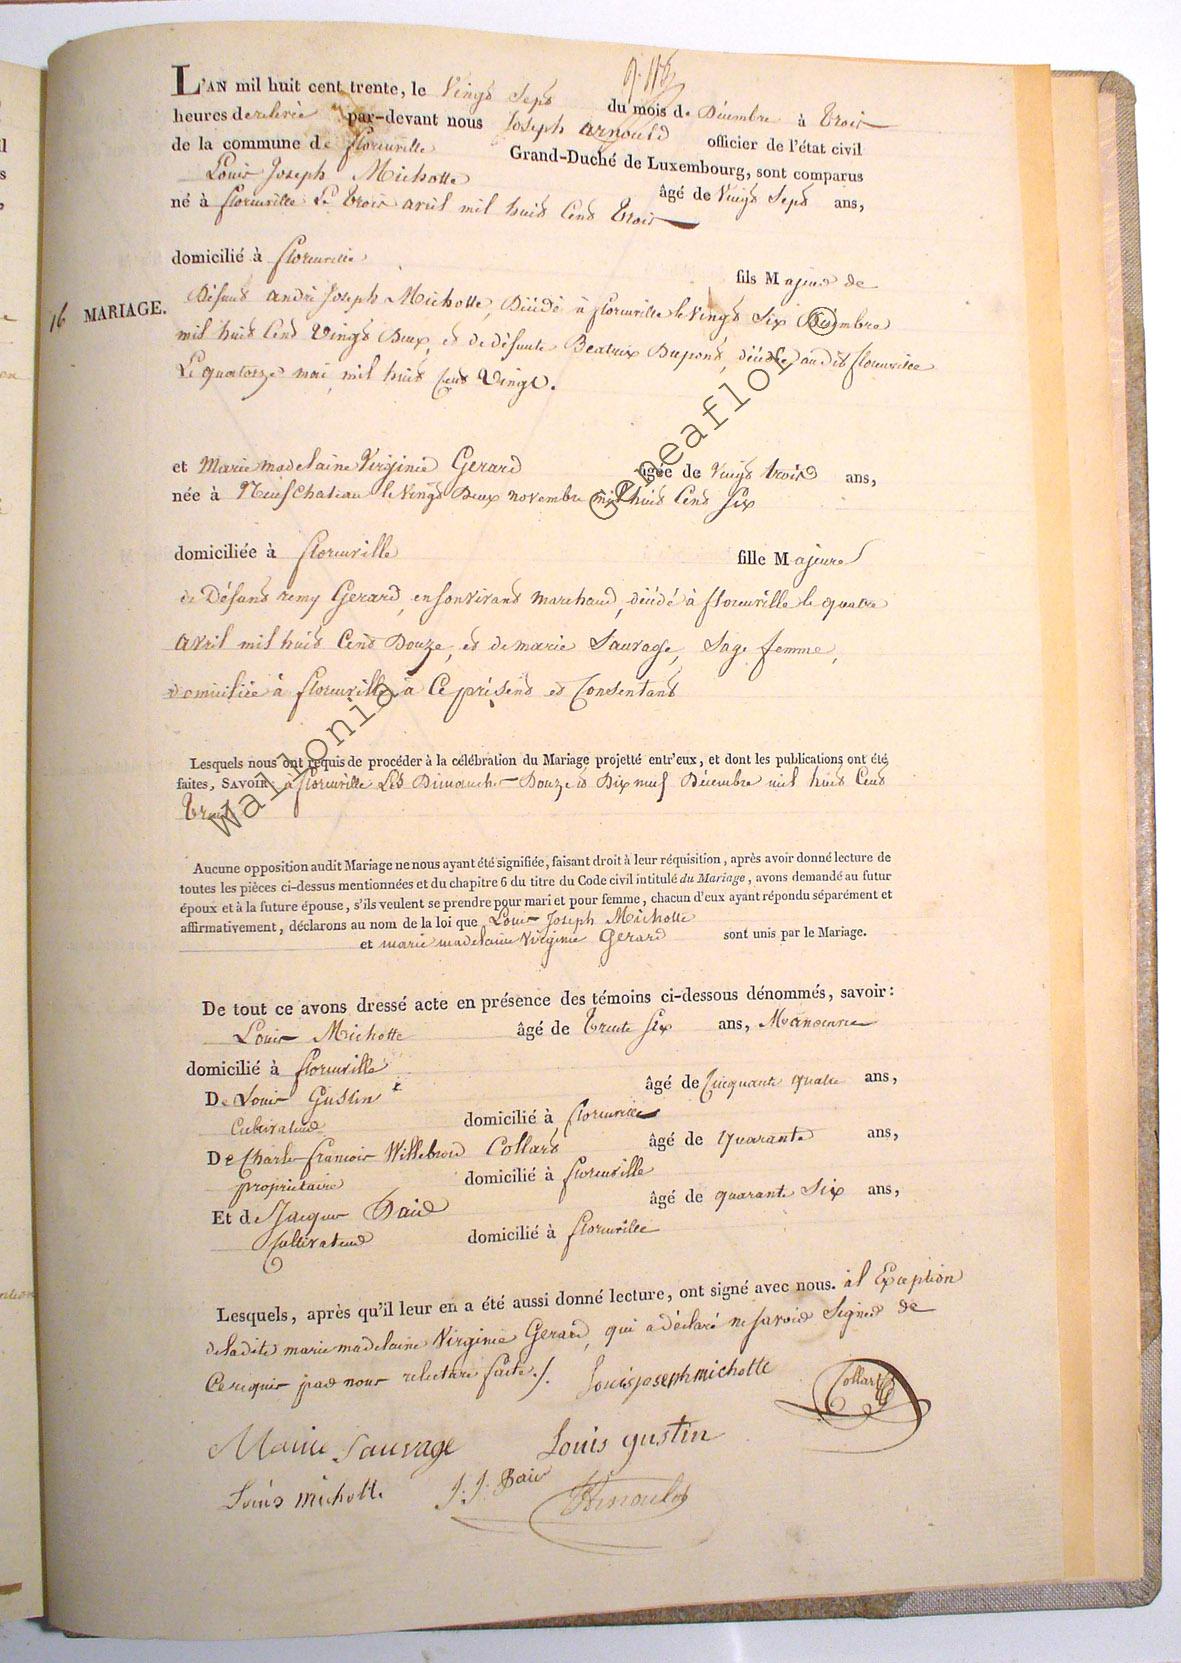 L'AN mil huit cent trente, le Vingt Sept du mois de Décembre à trois
heures de relevée par-devant nous Joseph Arnould officier de l'état civil
de la commune de florenville Grand-Duché de Luxembourg, sont comparus
Louis Joseph Michotte âgé de Vingt Sept ans,
né à florenville Le trois avril mil huit Cent trois
domicilié à florenville fils Majeur de
Défunt andré Joseph Michotte, Décédé à florenville le Vingt Six Décembre
16 MARIAGE.
mil huit Cent Vingt Deux, et de défunte Beatrix Dupont, décédée audit florenville
Le quatorze mai mil huit Cent Vingt.
et Marie madelaine Virginie Gerard âgée de Vingt trois ans,
née à Neufchateau le Vingt Deux novembre mil huit Cent Six
domiciliée à florenville fille Majeure
de Défunt remy Gerard, en son vivant marchand, décédé à florenville le quatre
avril mil huit Cent Douze, et de marie Sauvage, Sage femme,
domiciliée à florenville à Ce présent et Consentant
Lesquels nous ont requis de procéder à la célébration du Mariage projetté entr'eux, et dont les publications ont été
faites, SAVOIR à florenville Les Dimanche Douze et Dix neuf Décembre mil huit Cent
trente
Aucune opposition audit Mariage ne nous ayant été signifiée, faisant droit à leur réquisition, après avoir donné lecture de
toutes les pièces ci-dessus mentionnées et du chapitre 6 du titre du Code civil intitulé du Mariage, avons demandé au futur
époux et à la future épouse, s'ils veulent se prendre pour mari et pour femme, chacun d'eux ayant répondu séparément et
affirmativement, déclarons au nom de la loi que Louis Joseph Michotte
et marie madelaine Virginie Gerard sont unis par le Mariage.
De tout ce avons dressé acte en présence des témoins ci-dessous dénommés, savoir:
Louis Michotte âgé de trente Six ans, Manoeuvre
domicilié à florenville
De Louis Gustin âgé de Cinquante quatre ans,
Cultivateur domicilié à florenville
De Charles françois Willebrord Collard âgé de quarante ans,
propriétaire domicilié à florenville
Et de Jacques Baid âgé de quarante Six ans,
Cultivateur domicilié à florenville
Lesquels, après qu'il leur en a été aussi donné lecture, ont signé avec nous. à l'Exception
de ladite marie madelaine Virginie Gerard, qui a déclaré ne savoir Signer de
Ce requis par nous relecture faite./. Louis joseph michotte Collard
Marie Sauvage Louis gustin
Louis michotte J. J. Baid Arnould
wallonia
Geneaflor ©